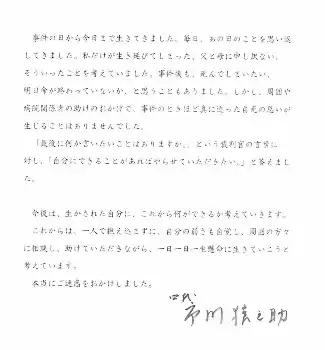 事件の日から今日まで生きてきました。毎日、あの日のことを思い返
してきました。私だけが生き延びてしまった、父と母に申し訳ない、
そういったことを考えていました。事件後も、死んでしまいたい、
明日今が終わっていないか、と思うこともありました。しかし、周囲や
病院関係者の助けのおかげで、事件のときほど真に迫った自死の思いが
生じることはありませんでした。
「最後に何か言いたいことはありますか。」という裁判官の言葉に
対し、「自分にできることがあればやらせていただきたい。」と答えまし
た。
今後は、生かされた自分に、これから何ができるか考えていきます。
これからは、一人で抱え込まずに、自分の弱さも自覚し、周囲の方々
に相談し、助けていただきながら、一日一日一生懸命に生きていこうと
考えています。
本当にご迷惑をおかけしました。
四代
市川猿之助